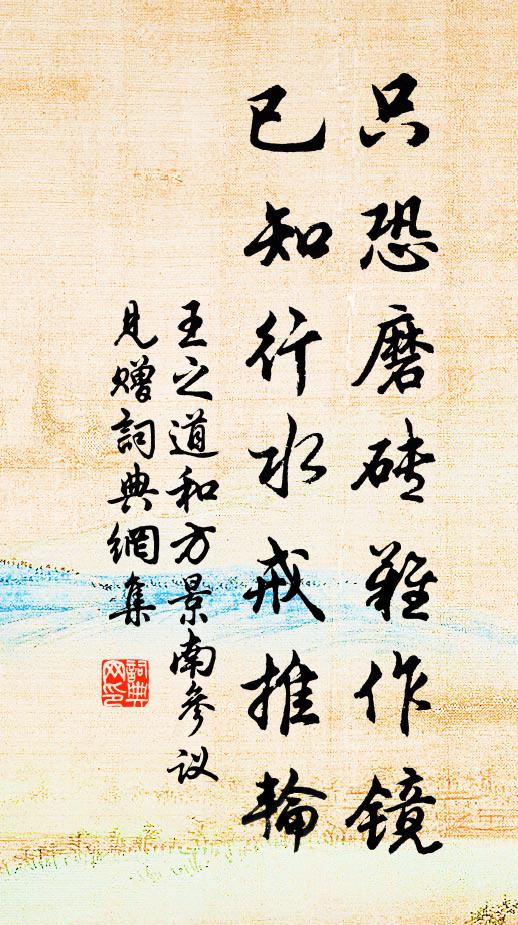 只恐磨砖难作镜
已知行水戒推轮
王之道和方景南参议
见赠词典网集
词典网印